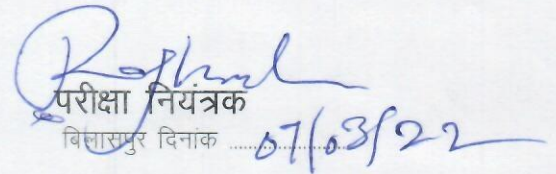 परीक्षा नियंत्रक
बिलासपुर दिनांक ........ 07/03/22